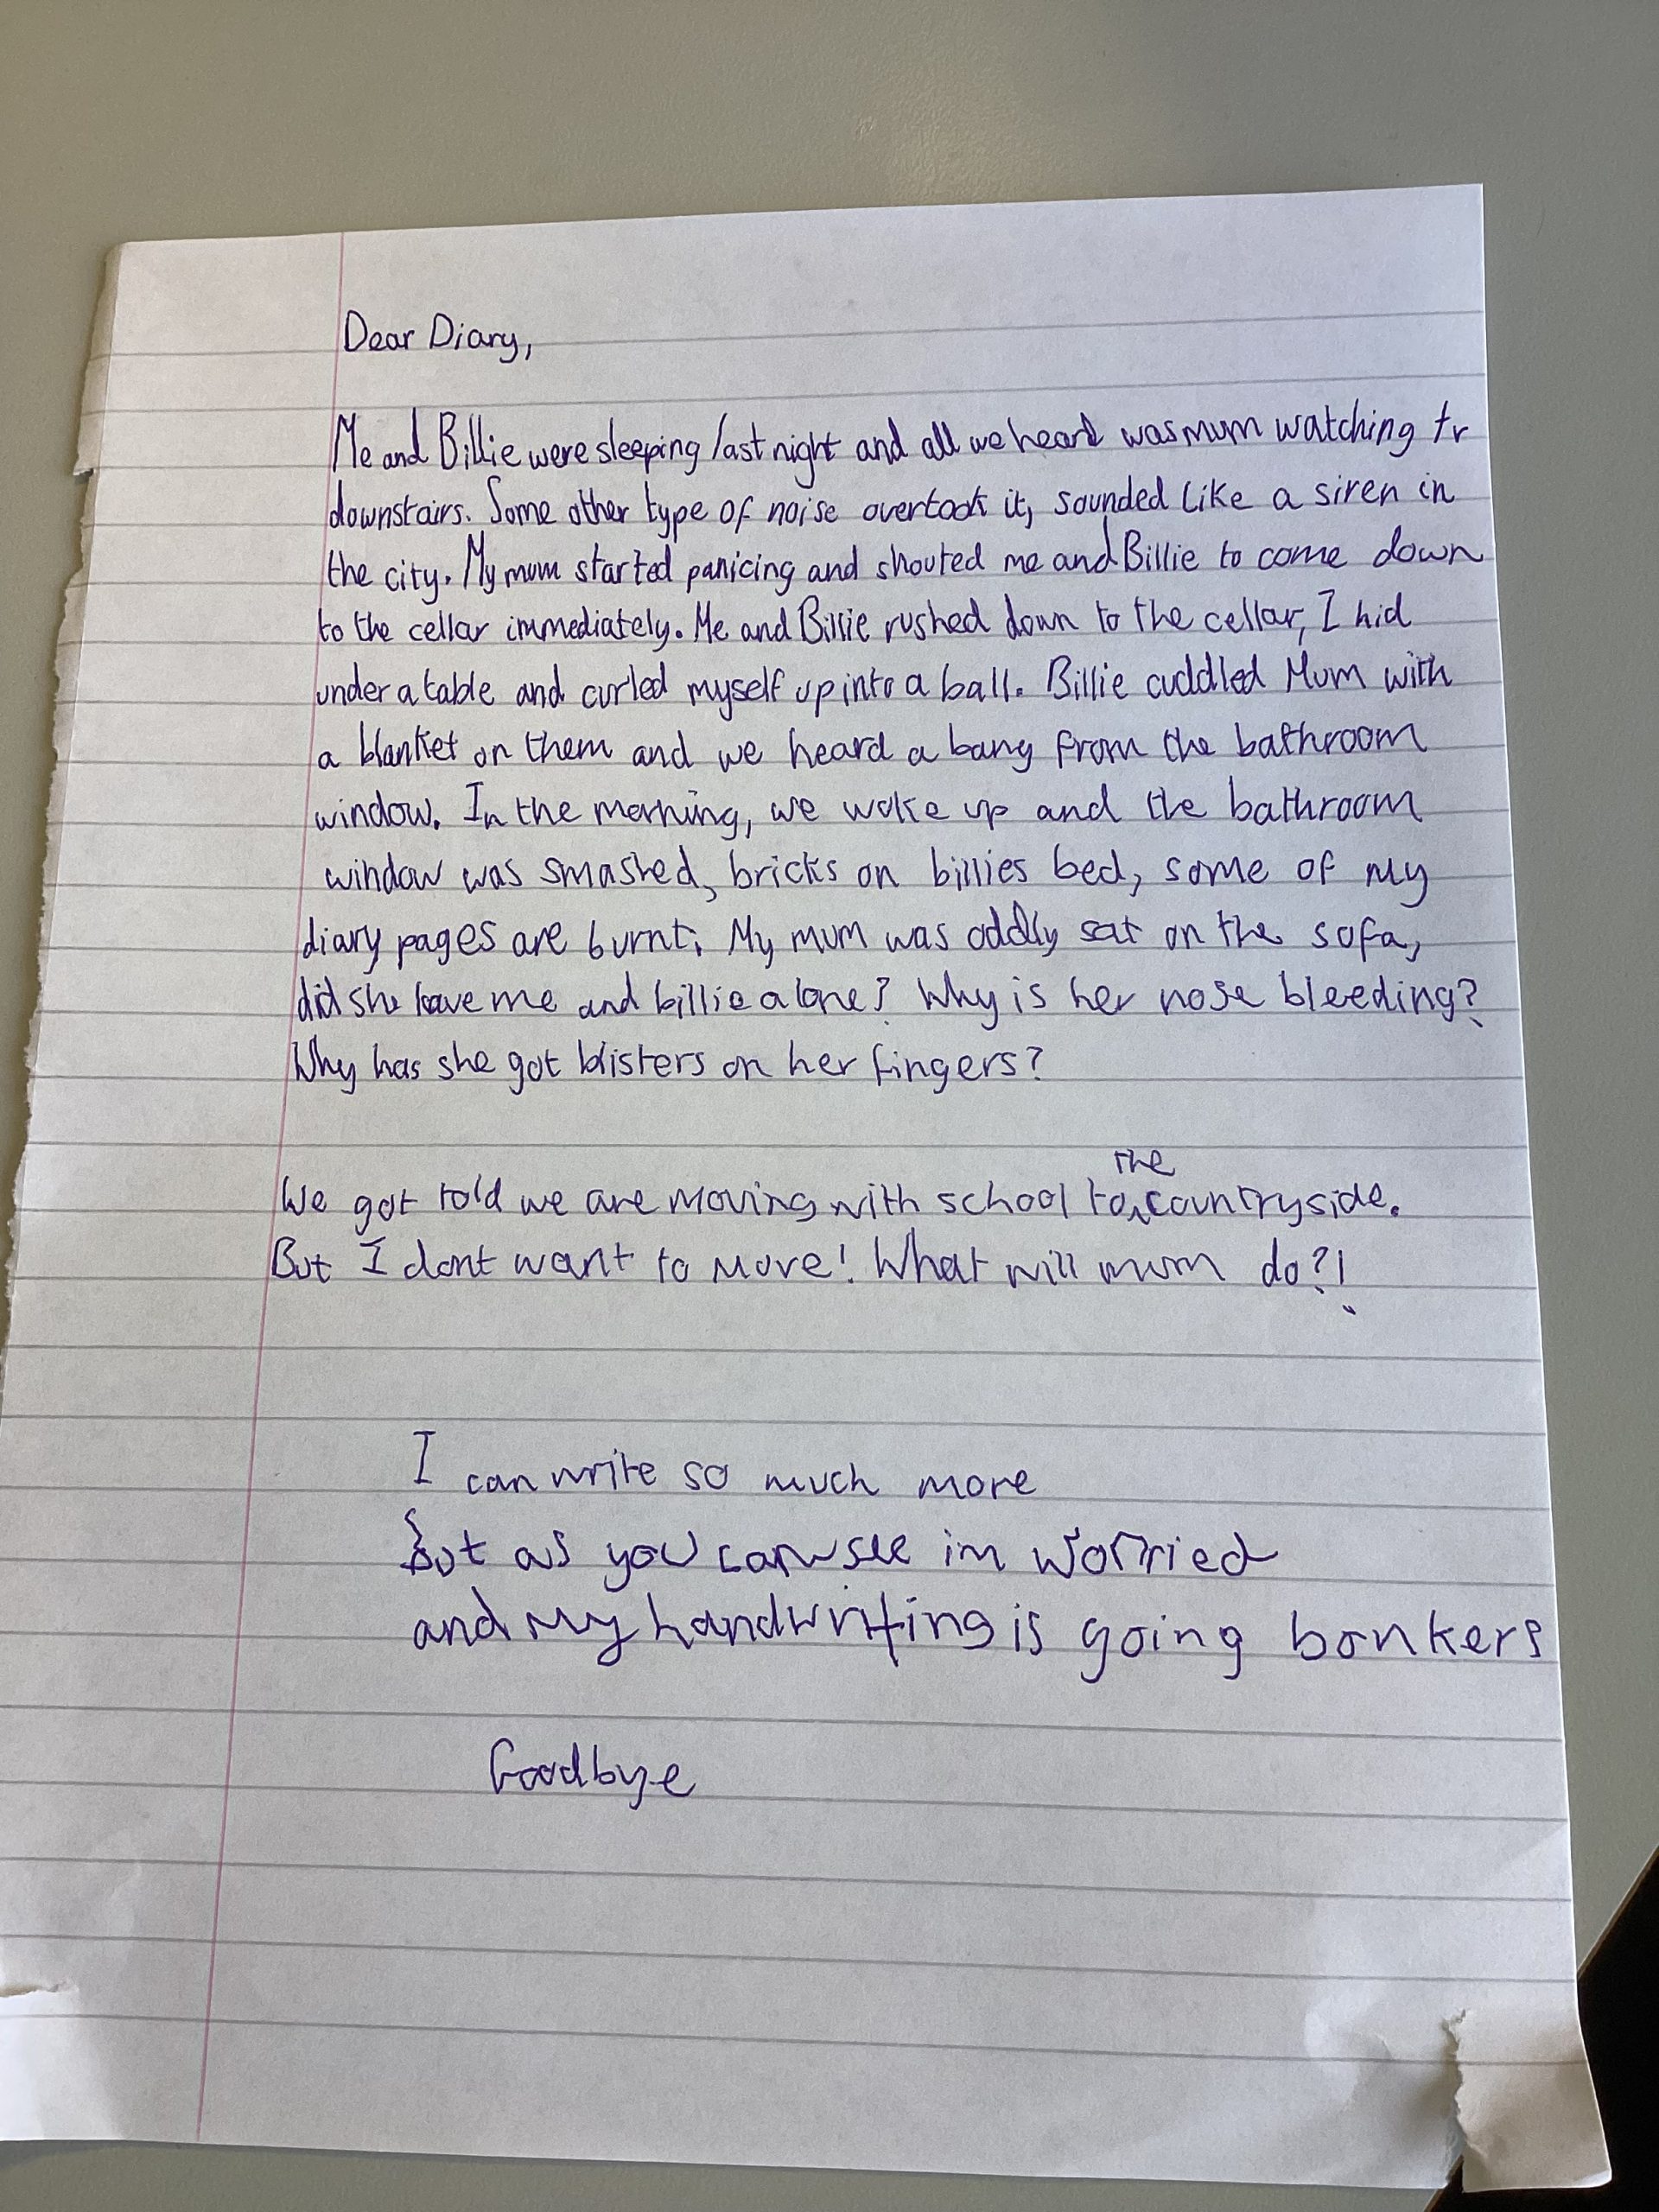 Dear Diary,
Me and Billie were sleeping last night and all we heard was mum watching tv
downstairs. Some other type of noise overtook it, sounded like a siren in
the city. My mum started panicing and shouted me and Billie to come down
to the cellar immediately. Me and Billie rushed down to the cellar, I hid
under a table and curled myself up into a ball. Billie cuddled Mum with
a blanket on them and we heard a bang from the bathroom
window. In the morning, we woke up and the bathroom
window was smashed, bricks on billies bed, some of my
diary pages are burnt. My mum was oddly sat on the sofa,
did she leave me and billie alone? Why is her nose bleeding?
Why has she got blisters on her fingers?
We got told we are moving with school to the countryside.
But I dont want to move! What will mum do?!
I can write so much more
But as you can see im worried
and my handwriting is going bonkers
Goodbye